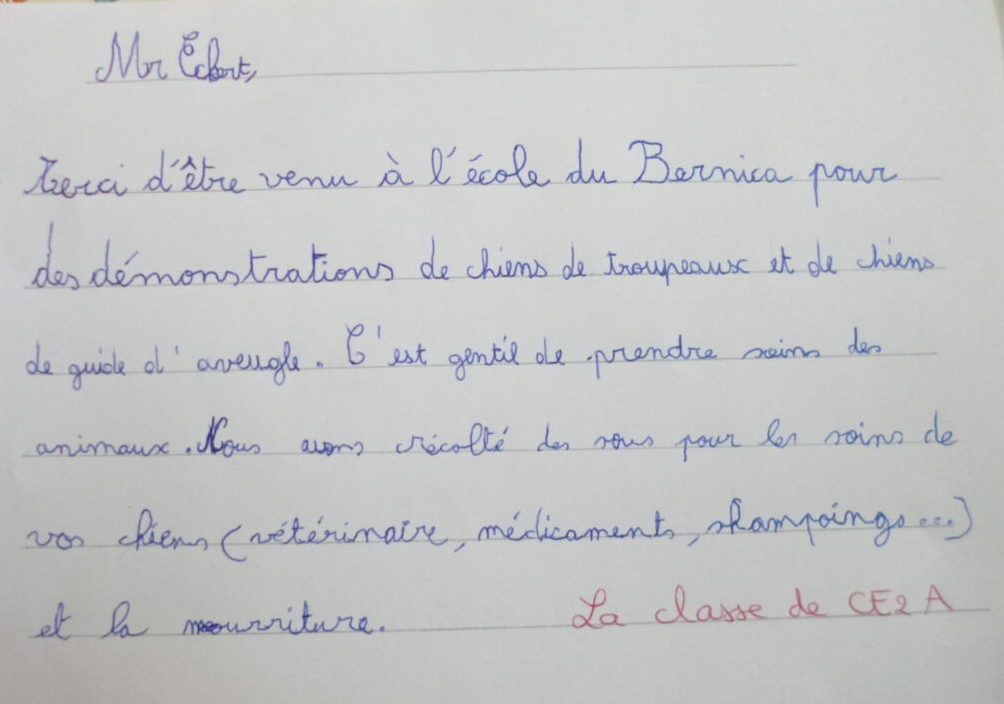 Mr Eckert,
Merci d'être venu à l'école du Bernica pour
des démonstrations de chiens de troupeaux et de chiens
de guide d'aveugle. C'est gentil de prendre soins des
animaux. Nous avons récolté des sous pour les soins de
vos chiens (vétérinaire, médicaments, shampoings...)
et la nourriture. La classe de CE2 A